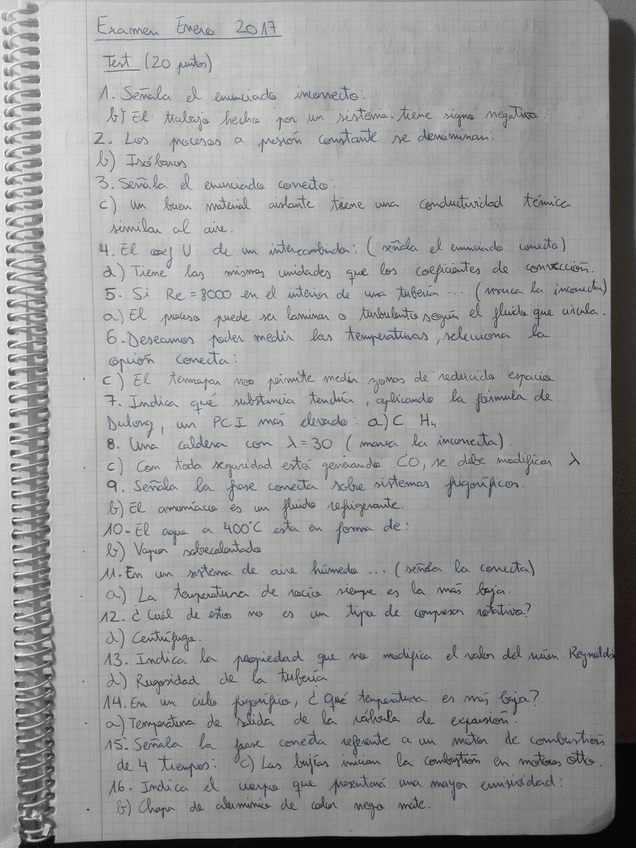 Examen Enero 2017
Test (20 puntos)
1. Señala el enunciado incorrecto:
b) El trabajo hecho por un sistema tiene signo negativo.
2. Los procesos a presión constante se denominan:
b) Isóbaros
3. Señala el enunciado correcto:
c) un buen material aislante tiene una conductividad térmica
similar al aire.
4. El coef U de un intercambiador: (señala el enunciado correcto)
d) Tiene las mismas unidades que los coeficientes de convección.
5. Si Re = 8000 en el interior de una tubería ... (marca la incorrecta)
a) El proceso puede ser laminar o turbulento según el fluido que circula.
6. Deseamos poder medir las temperaturas, selecciona la
opción correcta:
c) El termopar nos permite medir zonas de reducido espacio
7. Indica qué substancia tendría, aplicando la fórmula de
Dulong, un PCI más elevado: a) C H4
8. Una caldera con λ = 30 (marca la incorrecta)
c) Con toda seguridad está generando CO, se debe modificar λ
9. Señala la frase correcta sobre sistemas frigoríficos.
b) El amoníaco es un fluido refrigerante.
10. El agua a 400°C esta en forma de:
b) Vapor sobrecalentado
11. En un sistema de aire húmedo ... (señala la correcta)
a) La temperatura de rocío siempre es la más baja.
12. ¿Cuál de estos no es un tipo de compresor rotativo?
d) Centrífugo.
13. Indica la propiedad que no modifica el valor del núm. Reynolds
d) Rugosidad de la tubería
14. En un ciclo frigorífico, ¿Qué temperatura es más baja?
a) Temperatura de salida de la válvula de expansión.
15. Señala la frase correcta referente a un motor de combustión
de 4 tiempos: c) Las bujías inician la combustión en motores Otto.
16. Indica el cuerpo que presentará una mayor emisividad:
b) Chapa de aluminio de color negro mate.